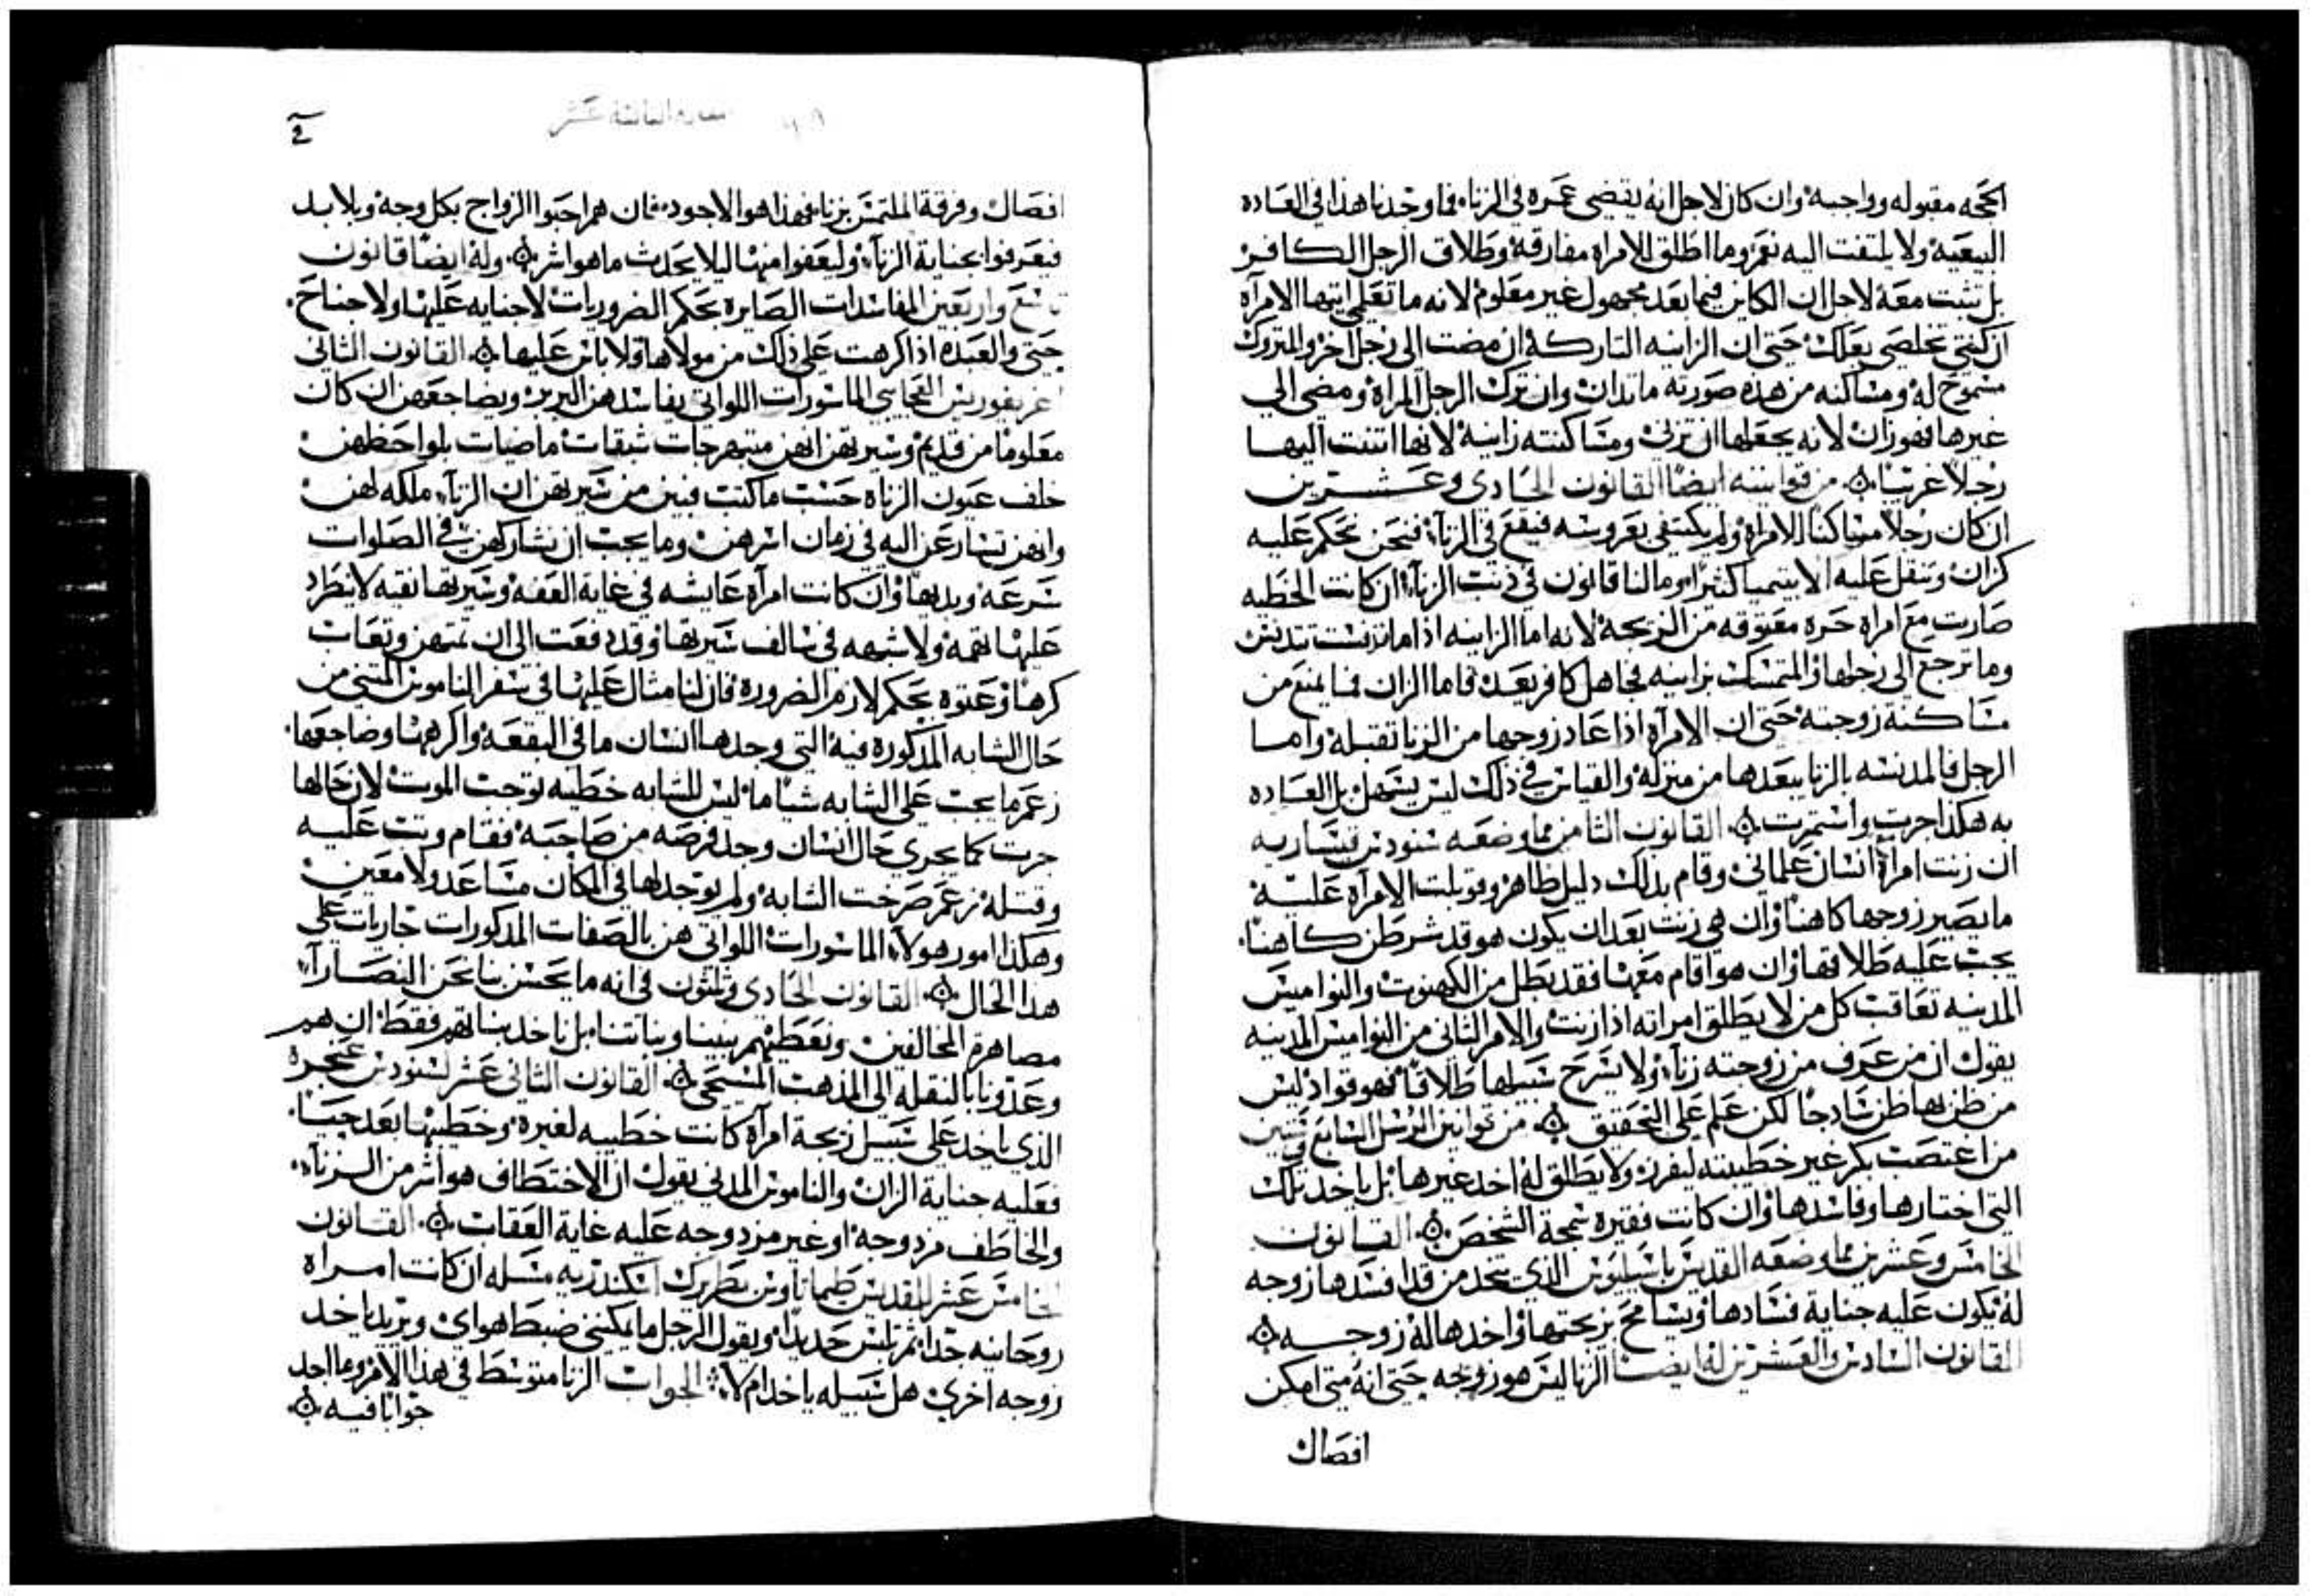 الحجه مقبوله وواجبه وان كان لاجل انه يقضي عمره في الزناء فما وجدنا هذا في العاده
البيعيه ولا يلتفت اليه نعم وما اطلق للامراه مفارقة وطلاق الرجل الكافر
بل تثبت معه لاجل ان الكاين فيما بعد مجهول غير معلوم لانه ما تعلمي ايتها الامرآه
ان كنتي تخلصي بعلك حتي ان الزانيه التاركه ان مضت الي رجل اخر والمتروك
مسموح له ومساكنه من هذه صورته ما تدان وان ترك الرجل المراه ومضي الي
غيرها فهو زان لانه يجعلها ان تزني ومساكنته زانيه لانها اتنت اليها
رجلا غريبا من قوانينه ايضا القانون الحادي وعشرين
ان كان رجلا مساكنا لامراه ولم يكتفي بعروسه فيقع في الزنآء فنحن نحكم عليه
كزان ونثقل عليه الابيتميا كثيرا وما لنا قانون في ذنب الزنآء ان كانت الخطيه
صارت مع امراه حره معتوقه من الزيجه لانه اما الزانيه اذا ما تدنست تتدنس
وما ترجع الي رجلها والمتمسك بزانيه فجاهل كافر يعد فاما الزان فما يمنع من
مساكنة زوجته حتي ان الامرآه اذا عاد زوجها من الزنا تقبله واما
الرجل فالمدنسه بالزنا يبعدها من منزله والقياس في ذلك ليس يسهل بل العاده
به هكذا جرت واستمرت القانون الثامن مما وضعه سنودس قيساريه
ان زنت امرآة انسان علماني وقام بذلك دليل ظاهر وقوبلت الامرآه عليه
ما يصير زوجها كاهنا وان هي زنت بعد ان يكون هو قد شرطن كاهنا
يجب عليه طلاقها وان هو اقام معها فقد بطل من الكهنوت والنواميس
المدنيه تعاقب كل من لا يطلق امراته اذا زنت والامر الثاني من النواميس المدنيه
يقول ان من عرف من زوجته زنآء ولا يسرح سبيلها طلاقا فهو قواد ليس
من ظن بها ظن سادجا لكن علم علي التحقيق من قوانين الرسل السابع وستين
من اغتصب بكر غير خطيبته ليفرز ولا يطلق له اخد غيرها بل ياخد تلك
التي اختارها وفاسدها وان كانت فقيره سمجة الشخص القانون
الخامس وعشرين مما وضعه القديس باسيليوس الذي يتخد من قد افسدها زوجه
له يكون عليه جناية فسادها ويسامح بزيجتها واخدها له زوجه
القانون السادس والعشرين له ايضا الزنا ليس هو زيجه حتي انه متي امكن
افصال
افصال وفرقة الملتمسن بزنا فهذا هو الاجود فان هم احبوا الزواج بكل وجه وبلا بد
فيعرفوا بجناية الزنآء وليعفوا منها ليلا يحدث ماهو اشر وله ايضا قانون
تاسع واربعين المفاسدات الصايره بحكم الضروريات لا جنايه عليها ولا جناح
حتي والعبده اذا اكرهت علي ذلك من مولاها ولا باس عليها القانون الثاني
غريغوريس العجايبي الماسورات اللواتي يفاسدهن البربر ويضاجعهن ان كان
معلوما من قديم وسيرتهن انهن متبهرجات شبقات ماضيات بلواحظهن
خلف عيون الزناه حسب ما كتب فبين من سيرتهن ان الزنآء ملكه لهن
وانهن تسارعن اليه في زمان اسرهن وما يجب ان نشاركهن في الصلوات
سرعه وبديها وان كانت امرآه عايشه في غاية العفه وسيرتها نقيه لا يطراد
عليها تهمه ولا شبهه في سالف سيرتها وقد دفعت الي ان تمتهن وتعاب
كرها وعنوه بحكم لازم الضروره فان لنا مثال عليها في سفر الناموس المثني من
حال الشابه المذكوره فيه التي وجدها انسان ما في البقعه واكرهها وضاجعها
زعم ما يجب علي الشابه شيا ما ليس للشابه خطيه توجب الموت لان حالها
جرت كما يجري حال انسان وجد فرصه من صاحبه فقام وثب عليه
وقتله زعم صرخت الشابه ولم يوجد لها في المكان مساعد ولا معين
وهكذا امور هولآء الماسورات اللواتي هن بالصفات المذكورات جاريات علي
هذا الحال القانون الحادي وثلثون في انه ما يحسن بنا نحن النصارآء
مصاهرة المخالفين ونعطيهم بنينا وبناتنا بل ناخد بناتهم فقط ان هم
وعدونا بالنقله الي المذهب المسيحي القانون الثاني عشر لسنودس عنجره
الذي ياخد علي سبيل زيجة امرآه كانت خطيبه لغيره وخطيها بعد حيا
فعليه جناية الزان والناموس المدني يقول ان الاختطاف هو اشر من الزنآء
والخاطف مزدوجه او غير مزدوجه عليه غاية العقاب القانون
الخامس عشر للقديس طيماتاوس بطريرك اسكندريه مسله ان كانت امراه
روحانيه جدا ثم تلبس حديدا ويقول الرجل ما يمكنني ضبط هواي ويريد ياخد
زوجه اخري هل سبيله ياخد ام لا الجواب الزنا متوسط في هذا الامر وما اجد
جوابا فيه